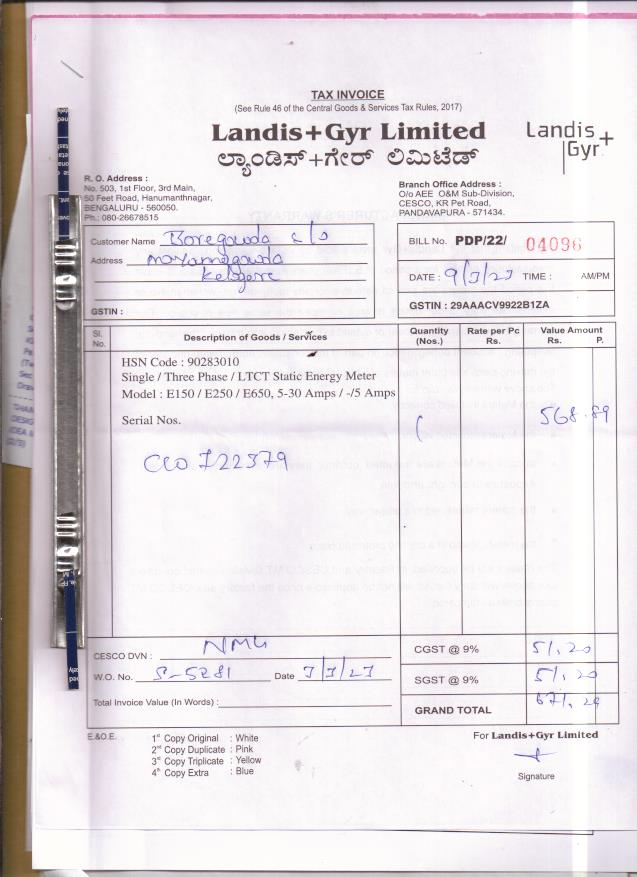 TAX INVOICE
(See Rule 46 of the Central Goods & Services Tax Rules, 2017)
Landis+Gyr Limited
ಲ್ಯಾಂಡಿಸ್+ಗೇರ್ ಲಿಮಿಟೆಡ್
Landis+
Gyr
R. O. Address :
No. 503, 1st Floor, 3rd Main,
50 Feet Road, Hanumanthnagar,
BENGALURU - 560050.
Ph.: 080-26678515
Branch Office Address :
O/o AEE O&M Sub-Division,
CESCO, KR Pet Road,
PANDAVAPURA - 571434.
Customer Name Boregowda S/o
Address
GSTIN :
BILL No. PDP/22/ 04096
DATE : TIME : AM/PM
GSTIN : 29AAACV9922B1ZA
Sl. No. Description of Goods / Services Quantity (Nos.) Rate per Pc Rs. Value Amount Rs. P.
HSN Code : 90283010
Single / Three Phase / LTCT Static Energy Meter
Model : E150 / E250 / E650, 5-30 Amps / -/5 Amps
Serial Nos. 568.89
CESCO DVN :
W.O. No. Date
Total Invoice Value (In Words) :
CGST @ 9% 51.20
SGST @ 9% 51.20
GRAND TOTAL
E.&O.E.
1st Copy Original : White
2nd Copy Duplicate : Pink
3rd Copy Triplicate : Yellow
4th Copy Extra : Blue
For Landis+Gyr Limited
Signature